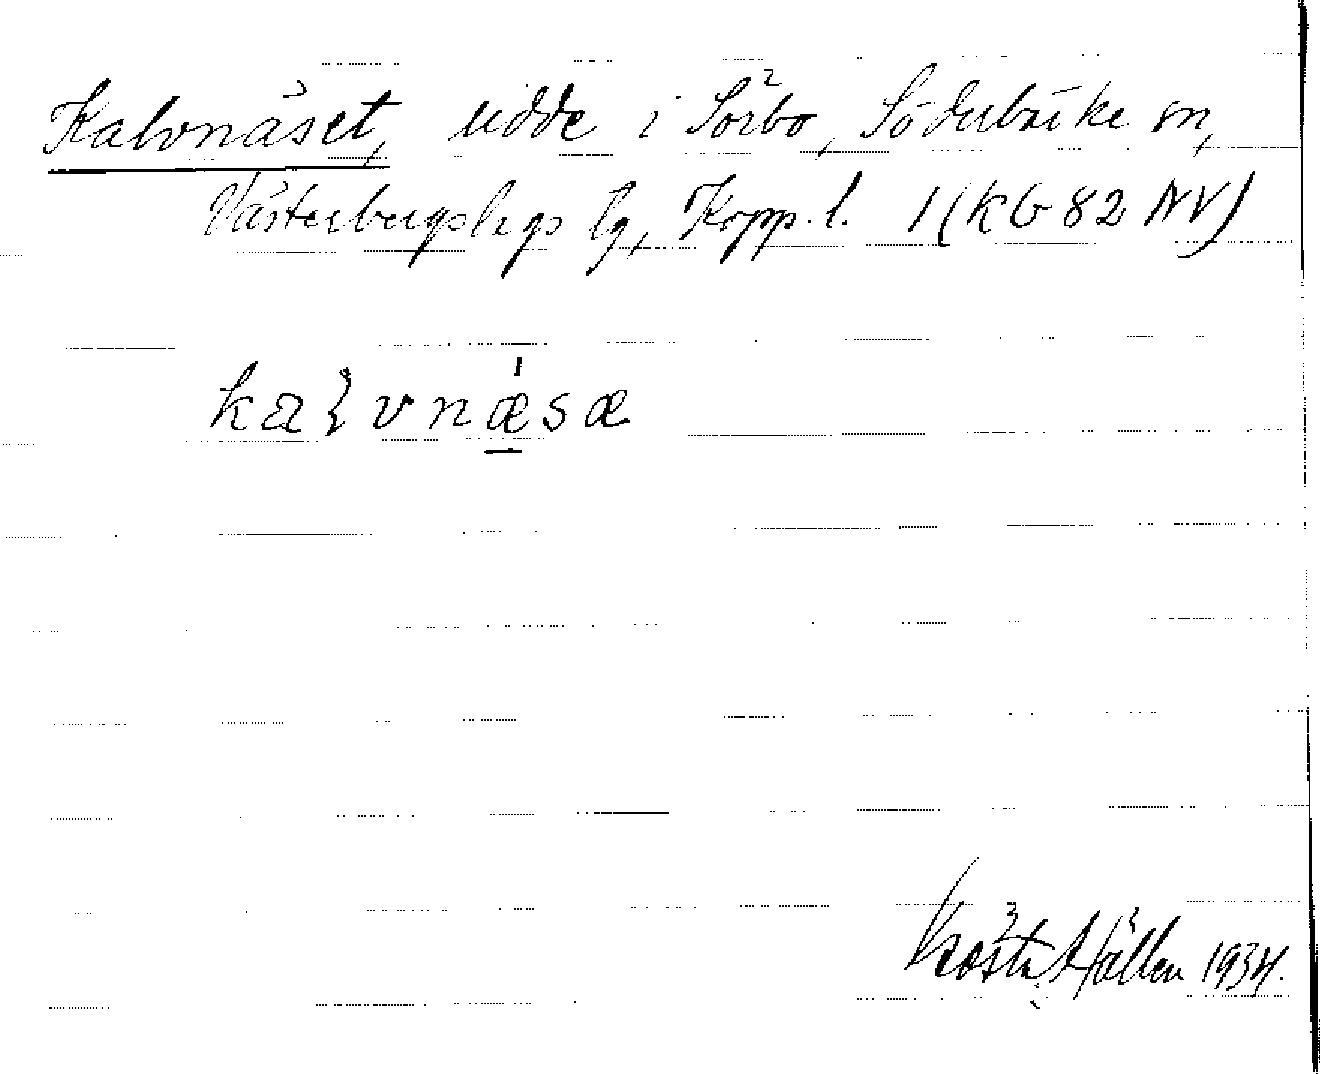 Kalvnäset, udde i Sörbo, Söderbärke sn,
Västerbergslags lg, Kopp. l. 1 (KG 82 NV)
Gösta Hallén 1934.